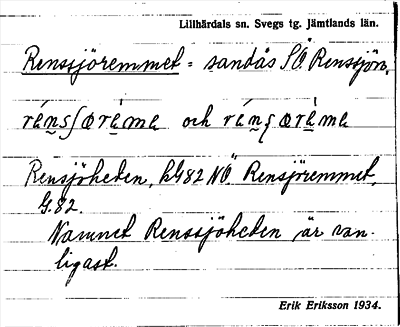 Lillhärdals sn. Svegs tg. Jämtlands län.
Rensjöremmet = sandås SÖ Rensjön,
och
Rensjöheden, kG82 NÖ Rensjöremmet,
G.82.
Namnet Rensjöheden är van-
ligast.
Erik Eriksson 1934.